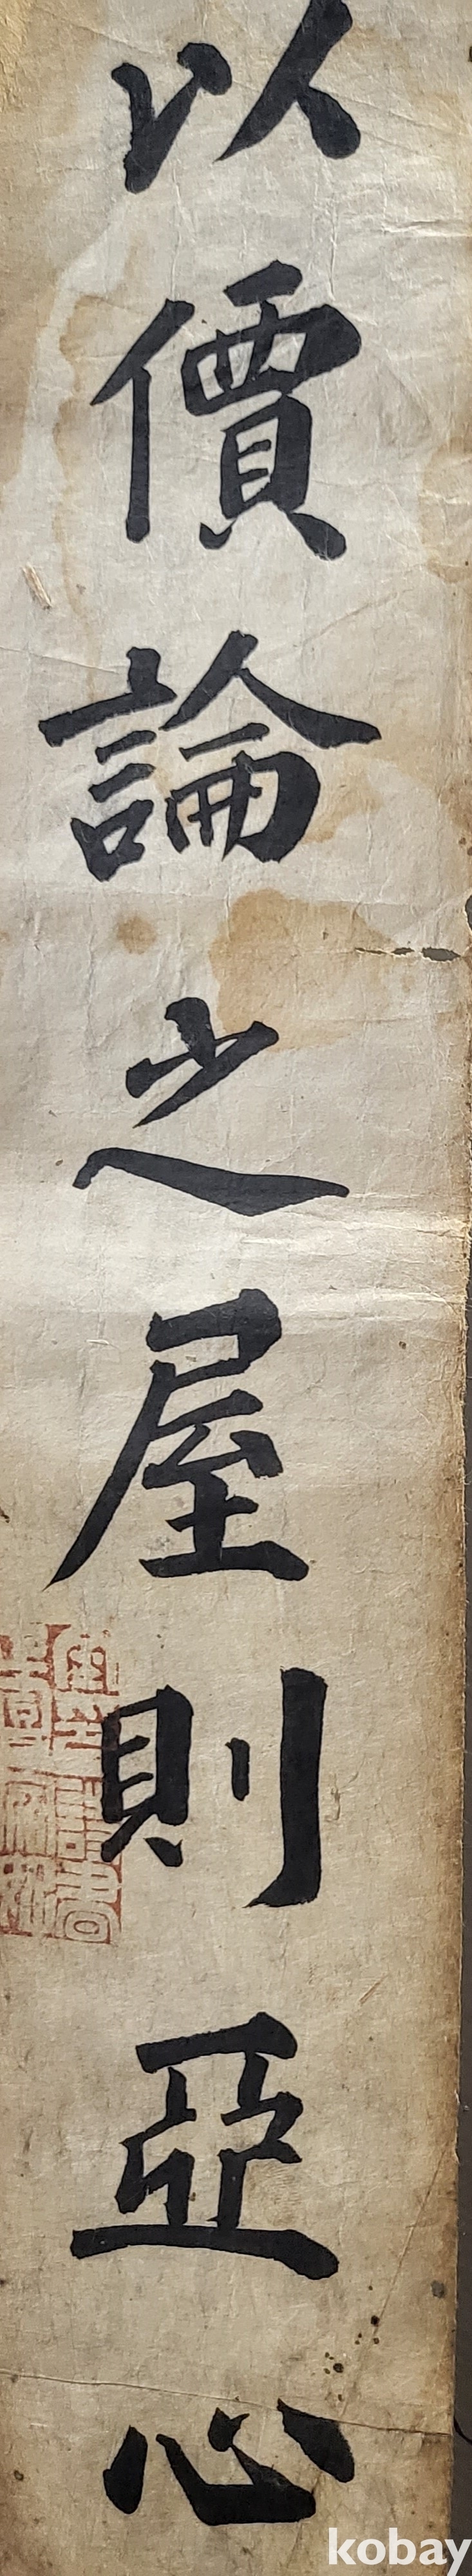 以價論之屋則亞心
kobay